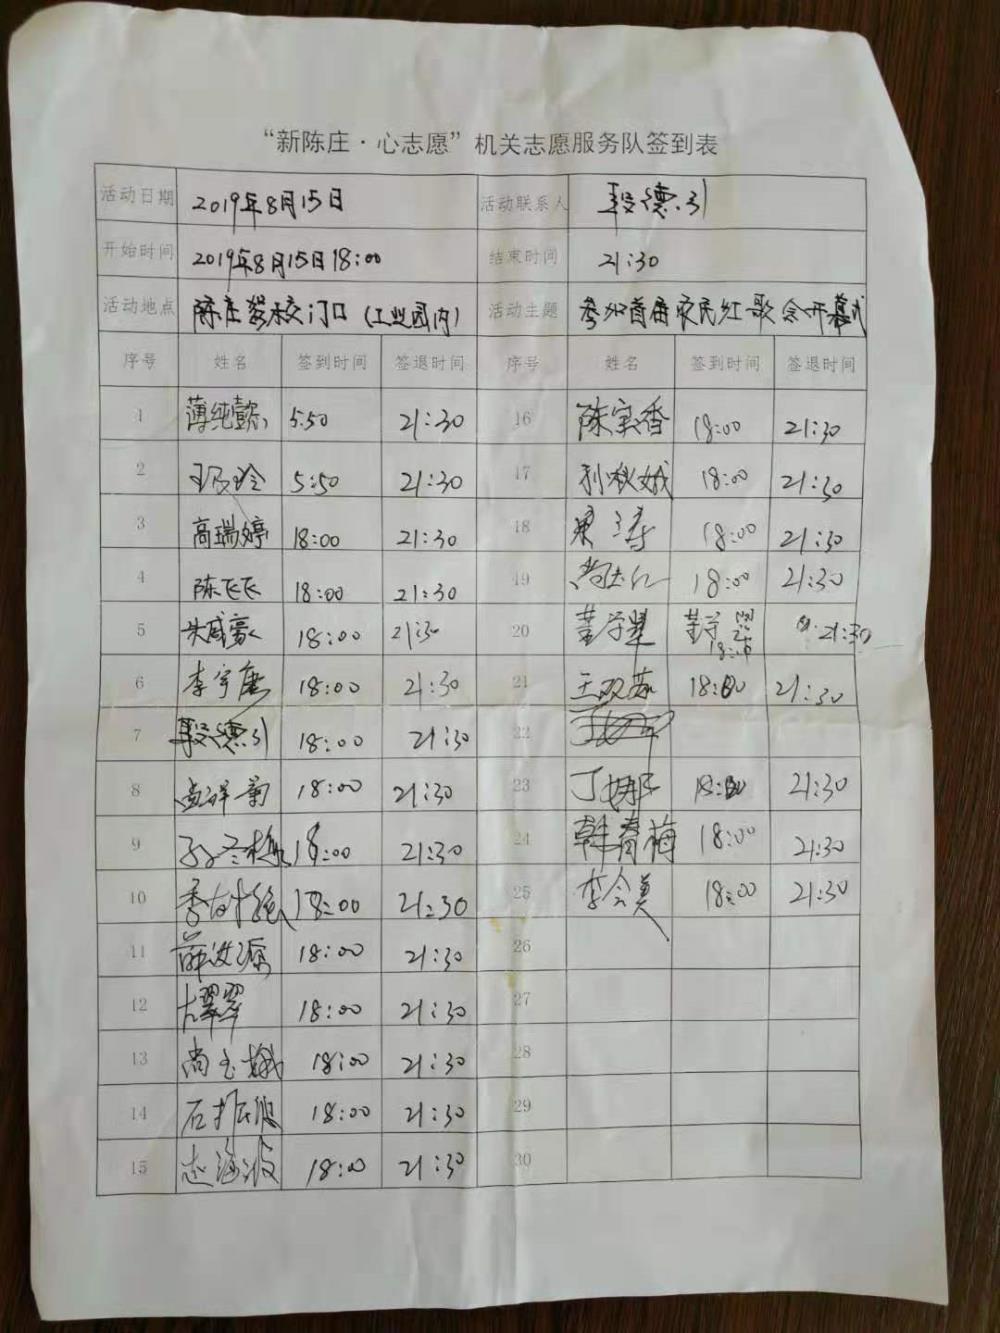 “新陈庄·心志愿”机关志愿服务队签到表
活动日期 2019年8月15日 活动联系人 段德引
开始时间 2019年8月15日18:00 结束时间 21:30
活动地点 陈庄驾校门口(工业园内) 活动主题 参加首届农民红歌会开幕式
序号 姓名 签到时间 签退时间 序号 姓名 签到时间 签退时间
1 薄纯懿 5:50 21:30 16 陈宝香 18:00 21:30
2 5:50 21:30 17 刘秋娥 18:00 21:30
3 高瑞婷 18:00 21:30 18 18:00 21:30
4 陈飞飞 18:00 21:30 19 18:00 21:30
5 朱咸豪 18:00 21:30 20 18:00 21:30
6 李宇康 18:00 21:30 21 王双燕 18:00 21:30
7 段德引 18:00 21:30 22
8 18:00 21:30 23 丁娜 18:00 21:30
9 18:00 21:30 24 韩春梅 18:00 21:30
10 18:00 21:30 25 李会美 18:00 21:30
11 薛汝源 18:00 21:30 26
12 翠翠 18:00 21:30 27
13 尚玉娥 18:00 21:30 28
14 石振波 18:00 21:30 29
15 赵海波 18:00 21:30 30